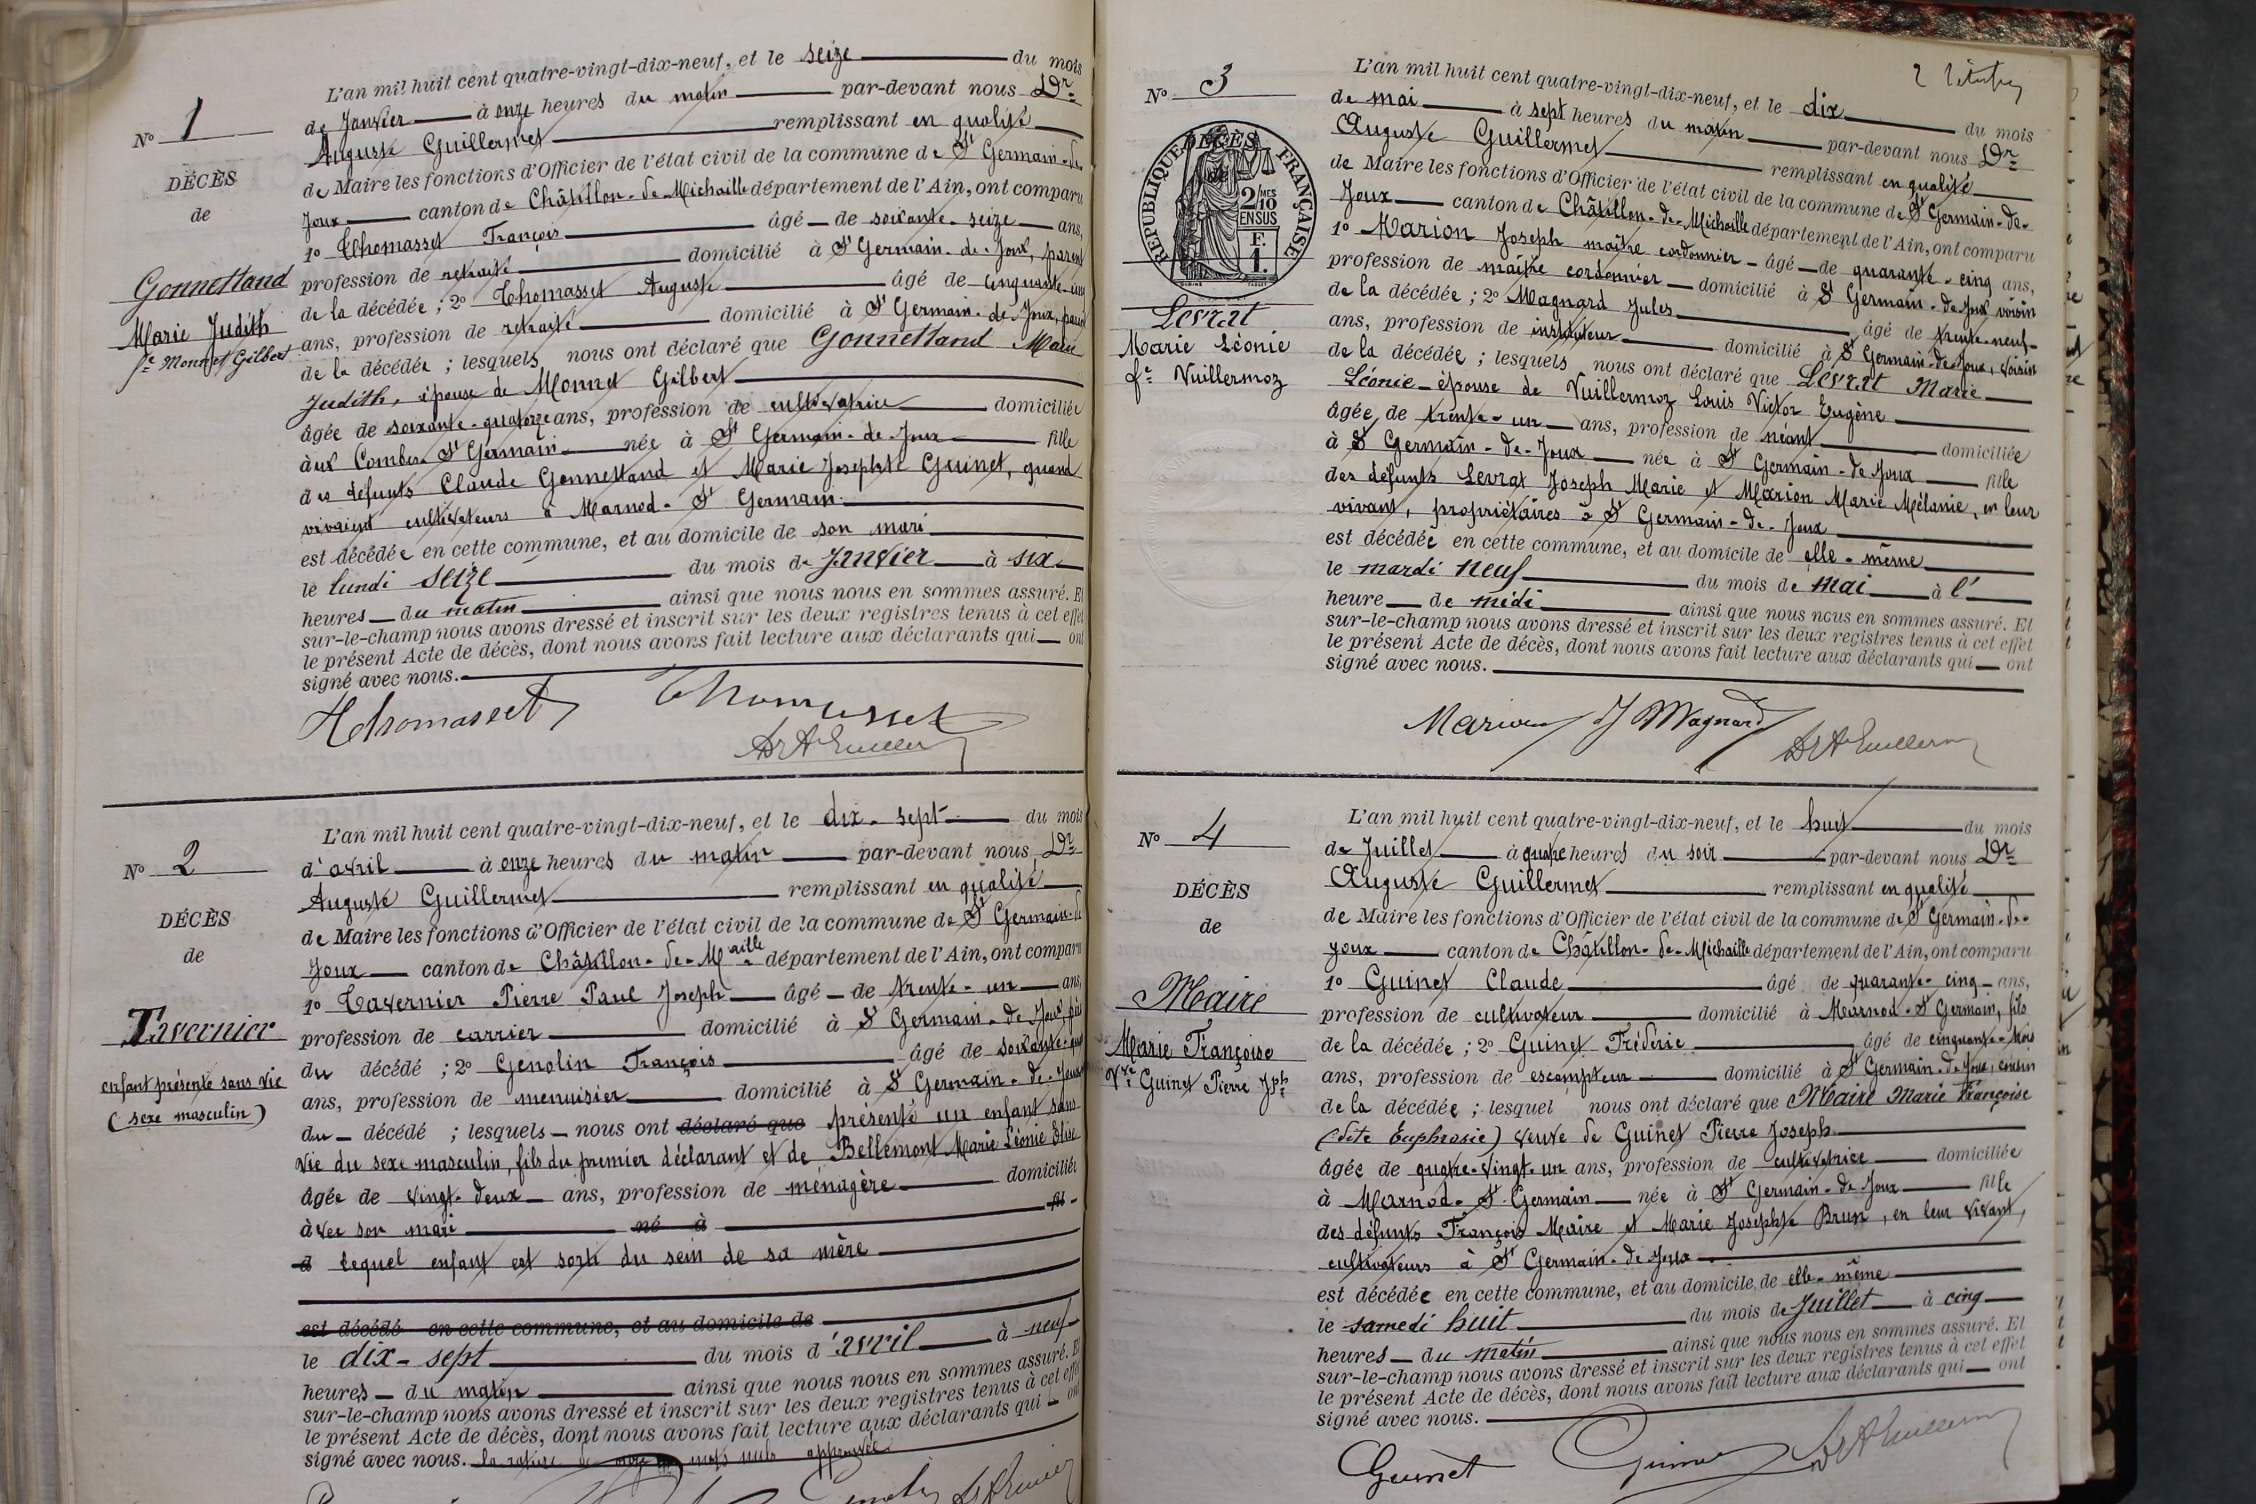 N° 1
DÉCÈS
de
Gonnetland
Marie Judith
fe Monnet Gilbert
L'an mil huit cent quatre-vingt-dix-neuf, et le seize du mois
de Janvier à onze heures du matin par-devant nous Dr
Auguste Guillermet remplissant en qualité
de Maire les fonctions d'Officier de l'état civil de la commune de St Germain-de-
Joux canton de Châtillon-de-Michaille département de l'Ain, ont comparu
1° Thomasset François âgé de soixante-seize ans,
profession de retraité domicilié à St Germain-de-Joux, parent
de la décédée; 2° Thomasset Auguste âgé de cinquante-cinq
ans, profession de retraité domicilié à St Germain-de-Joux, parent
de la décédée; lesquels nous ont déclaré que Gonnetland Marie
Judith, épouse de Monnet Gilbert
âgée de soixante-quatorze ans, profession de cultivatrice domiciliée
aux Combes St Germain née à St Germain-de-Joux fille
des défunts Claude Gonnetland et Marie Josephte Guinet, quand
vivaient cultivateurs à Marnod-St Germain.
est décédée en cette commune, et au domicile de son mari
le lundi seize du mois de Janvier à six
heures du matin ainsi que nous nous en sommes assuré. Et
sur-le-champ nous avons dressé et inscrit sur les deux registres tenus à cet effet
le présent Acte de décès, dont nous avons fait lecture aux déclarants qui ont
signé avec nous.
Thomasset Thomasset
Dr A Guillermet
N° 2
DÉCÈS
de
Tavernier
enfant présenté sans vie
(sexe masculin)
L'an mil huit cent quatre-vingt-dix-neuf, et le dix-sept du mois
d'avril à onze heures du matin par-devant nous Dr
Auguste Guillermet remplissant en qualité
de Maire les fonctions d'Officier de l'état civil de la commune de St Germain-de
Joux canton de Châtillon-de-Maille département de l'Ain, ont comparu
1° Tavernier Pierre Paul Joseph âgé de trente-un ans,
profession de carrier domicilié à St Germain-de Joux, père
du décédé; 2° Genolin François âgé de soixante-
ans, profession de menuisier domicilié à St Germain-de-Joux
du décédé; lesquels nous ont déclaré que présenté un enfant sans
vie du sexe masculin, fils du premier déclarant et de Bellemont Marie Léonie Elise
âgée de vingt-deux ans, profession de ménagère domiciliée
avec son mari né à fil
d lequel enfant est sorti du sein de sa mère
est décédé en cette commune, et au domicile de
le dix-sept du mois d'avril à neuf
heures du matin ainsi que nous nous en sommes assuré. Et
sur-le-champ nous avons dressé et inscrit sur les deux registres tenus à cet effet
le présent Acte de décès, dont nous avons fait lecture aux déclarants qui ont
signé avec nous. la rature de mots nuls approuvée
2 Octobre
N° 3
RÉPUBLIQUE FRANÇAISE
DÉCÈS
de
2/10 MES
EN SUS
F.
1.
Levrat
Marie Léonie
fe Vuillermoz
L'an mil huit cent quatre-vingt-dix-neuf, et le dix du mois
de mai à sept heures du matin par-devant nous Dr
Auguste Guillermet remplissant en qualité
de Maire les fonctions d'Officier de l'état civil de la commune de St Germain-de-
Joux canton de Châtillon-de-Michaille département de l'Ain, ont comparu
1° Marion Joseph maître cordonnier âgé de quarante-cinq ans,
profession de maître cordonnier domicilié à St Germain-de-Joux voisin
de la décédée; 2° Magnard Jules âgé de trente-neuf
ans, profession de instituteur domicilié à St Germain-de-Joux, voisin
de la décédée; lesquels nous ont déclaré que Levrat Marie
Léonie épouse de Vuillermoz Louis Victor Eugène
âgée de trente-un ans, profession de néant domiciliée
à St Germain-de-Joux née à St Germain-de Joux fille
des défunts Levrat Joseph Marie et Marion Marie Mélanie, en leur
vivant, propriétaires à St Germain-de-Joux
est décédée en cette commune, et au domicile de elle-même
le mardi neuf du mois de mai à l'
heure de midi ainsi que nous nous en sommes assuré. Et
sur-le-champ nous avons dressé et inscrit sur les deux registres tenus à cet effet
le présent Acte de décès, dont nous avons fait lecture aux déclarants qui ont
signé avec nous.
Marion J Magnard Dr A Guillermet
N° 4
DÉCÈS
de
Maire
Marie Françoise
Vve Guinet Pierre Jph
L'an mil huit cent quatre-vingt-dix-neuf, et le huit du mois
de Juillet à quatre heures du soir par-devant nous Dr
Auguste Guillermet remplissant en qualité
de Maire les fonctions d'Officier de l'état civil de la commune de St Germain-de-
Joux canton de Châtillon-de-Michaille département de l'Ain, ont comparu
1° Guinet Claude âgé de quarante-cinq ans,
profession de cultivateur domicilié à Marnod-St Germain, fils
de la décédée; 2° Guinet Fréderic âgé de cinquante-trois
ans, profession de escompteur domicilié à St Germain-de-Joux, cousin
de la décédée; lesquel nous ont déclaré que Maire Marie Françoise
(dite Euphrosie) veuve de Guinet Pierre Joseph
âgée de quatre-vingt-un ans, profession de cultivatrice domiciliée
à Marnod-St Germain née à St Germain-de Joux fille
des défunts François Maire et Marie Josephte Brun, en leur vivant,
cultivateurs à St Germain-de Joux
est décédée en cette commune, et au domicile de elle-même
le samedi huit du mois de Juillet à cinq
heures du matin ainsi que nous nous en sommes assuré. Et
sur-le-champ nous avons dressé et inscrit sur les deux registres tenus à cet effet
le présent Acte de décès, dont nous avons fait lecture aux déclarants qui ont
signé avec nous.
Guinet Guinet Dr A Guillermet